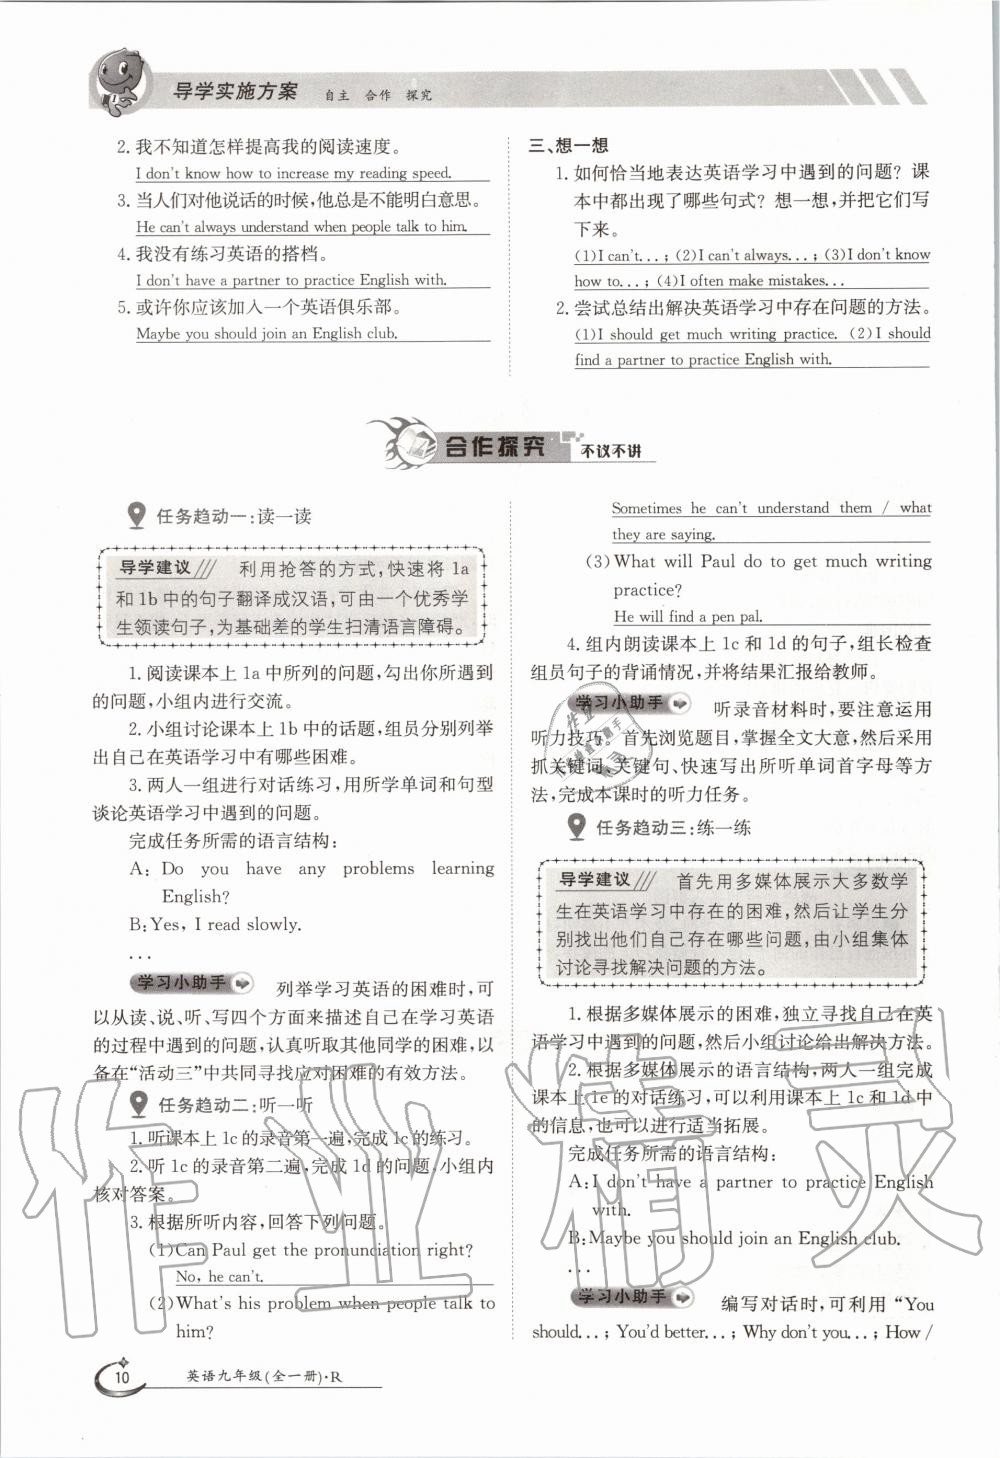 导学实施方案 自主 合作 探究
2. 我不知道怎样提高我的阅读速度。
I don't know how to increase my reading speed.
3. 当人们对他说话的时候,他总是不能明白意思。
He can't always understand when people talk to him.
4. 我没有练习英语的搭档。
I don't have a partner to practice English with.
5. 或许你应该加入一个英语俱乐部。
Maybe you should join an English club.
三、想一想
1. 如何恰当地表达英语学习中遇到的问题? 课
本中都出现了哪些句式? 想一想,并把它们写
下来。
(1)I can't...; (2)I can't always...; (3)I don't know
how to...; (4)I often make mistakes...
2. 尝试总结出解决英语学习中存在问题的方法。
(1)I should get much writing practice. (2)I should
find a partner to practice English with.
合作探究 不议不讲
任务趋动一:读一读
导学建议/// 利用抢答的方式,快速将 1a
和 1b 中的句子翻译成汉语,可由一个优秀学
生领读句子,为基础差的学生扫清语言障碍。
1. 阅读课本上 1a 中所列的问题,勾出你所遇到
的问题,小组内进行交流。
2. 小组讨论课本上 1b 中的话题,组员分别列举
出自己在英语学习中有哪些困难。
3. 两人一组进行对话练习,用所学单词和句型
谈论英语学习中遇到的问题。
完成任务所需的语言结构:
A: Do you have any problems learning
English?
B: Yes, I read slowly.
...
学习小助手 列举学习英语的困难时,可
以从读、说、听、写四个方面来描述自己在学习英语
的过程中遇到的问题,认真听取其他同学的困难,以
备在“活动三”中共同寻找应对困难的有效方法。
任务趋动二:听一听
1. 听课本上 1c 的录音第一遍,完成 1c 的练习。
2. 听 1c 的录音第二遍,完成 1d 的问题,小组内
核对答案。
3. 根据所听内容,回答下列问题。
(1)Can Paul get the pronunciation right?
No, he can't.
(2)What's his problem when people talk to
him?
Sometimes he can't understand them / what
they are saying.
(3)What will Paul do to get much writing
practice?
He will find a pen pal.
4. 组内朗读课本上 1c 和 1d 的句子,组长检查
组员句子的背诵情况,并将结果汇报给教师。
学习小助手 听录音材料时,要注意运用
听力技巧。首先浏览题目,掌握全文大意,然后采用
抓关键词、关键句、快速写出所听单词首字母等方
法,完成本课时的听力任务。
任务趋动三:练一练
导学建议/// 首先用多媒体展示大多数学
生在英语学习中存在的困难,然后让学生分
别找出他们自己存在哪些问题,由小组集体
讨论寻找解决问题的方法。
1. 根据多媒体展示的困难,独立寻找自己在英
语学习中遇到的问题,然后小组讨论给出解决方法。
2. 根据多媒体展示的语言结构,两人一组完成
课本上 1e 的对话练习,可以利用课本上 1c 和 1d 中
的信息,也可以进行适当拓展。
完成任务所需的语言结构:
A: I don't have a partner to practice English
with.
B: Maybe you should join an English club.
...
学习小助手 编写对话时,可利用“You
should...; You'd better...; Why don't you...; How /
10 英语九年级(全一册)·R
作业精灵